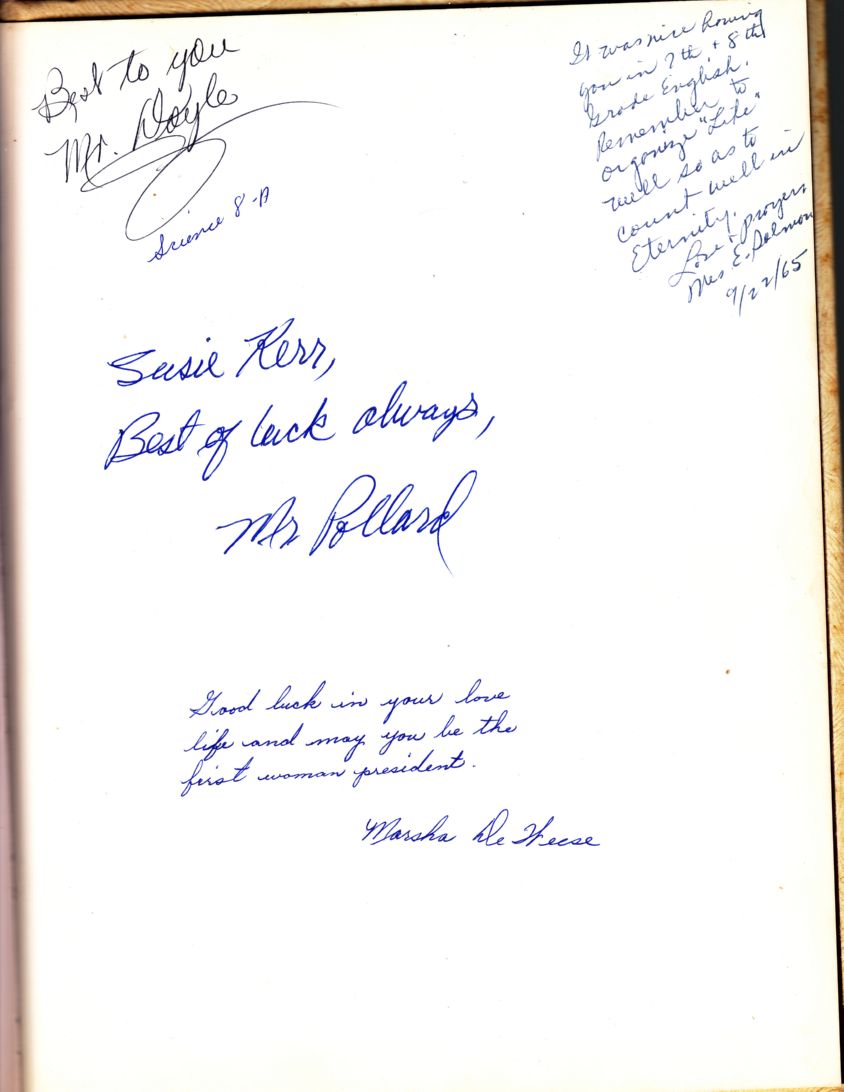 Best to you
Mr. Doyle
Science 8-A
It was nice having
you in 7th + 8th
Grade English.
Remember to
organize "Life"
well so as to
count well in
Eternity.
Love + prayers
Mrs E.
9/22/65
Susie Kerr,
Best of luck always,
Mr Pollard
Good luck in your love
life and may you be the
first woman president.
Marsha De Weese